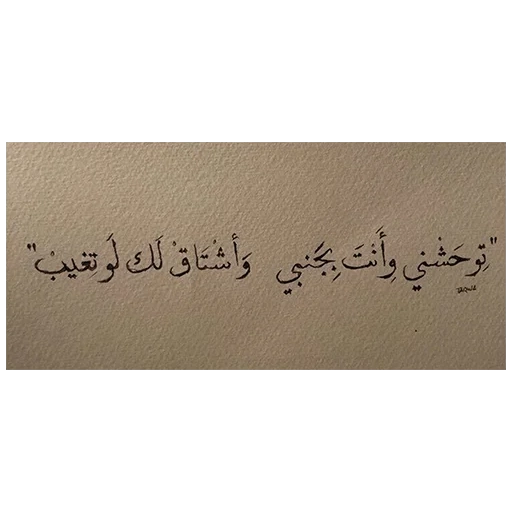 "تِوحَشْني وِأَنْتَ بِجَنبي وَأشْتَاقْ لَك لَو تغيبْ"